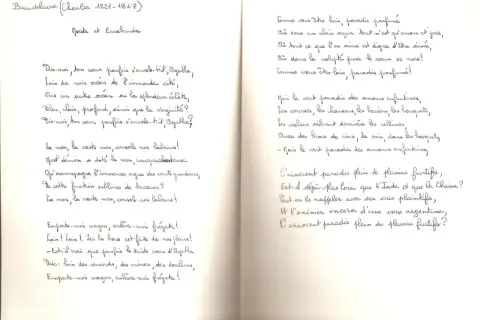 Baudelaire (Charles 1821-1867)
Moesta et Errabunda
Dis-moi, ton cœur parfois s'envole-t-il, Agathe,
Loin du noir océan de l'immonde cité,
Vers un autre océan où la splendeur éclate,
Bleu, clair, profond, ainsi que la virginité ?
Dis-moi, ton cœur parfois s'envole-t-il, Agathe ?
La mer, la vaste mer, console nos labeurs !
Quel démon a doté la mer, rauque chanteuse
Qu'accompagne l'immense orgue des vents grondeurs,
De cette fonction sublime de berceuse ?
La mer, la vaste mer, console nos labeurs !
Emporte-moi wagon, enlève-moi frégate !
Loin ! Loin ! Ici la boue est faite de nos pleurs !
- Est-il vrai que parfois le triste cœur d'Agathe
Dise : loin des remords, des crimes, des douleurs,
Emporte-moi wagon, enlève-moi frégate !
Comme vous êtes loin, paradis parfumé
Où sous un clair azur tout n'est qu'amour et joie,
Où tout ce que l'on aime est digne d'être aimé,
Où dans la volupté pure le cœur se noie !
Comme vous êtes loin, paradis parfumé !
Mais le vert paradis des amours enfantines,
Les courses, les chansons, les baisers, les bouquets,
Les violons vibrant derrière les collines
Avec les brocs de vin, le soir, dans les bosquets,
- Mais le vert paradis des amours enfantines,
L'innocent paradis plein de plaisirs furtifs,
Est-il déjà plus loin que l'Inde et que la Chine ?
Peut-on le rappeler avec des cris plaintifs,
Et l'animer encore d'une voix argentine,
L'innocent paradis plein de plaisirs furtifs ?